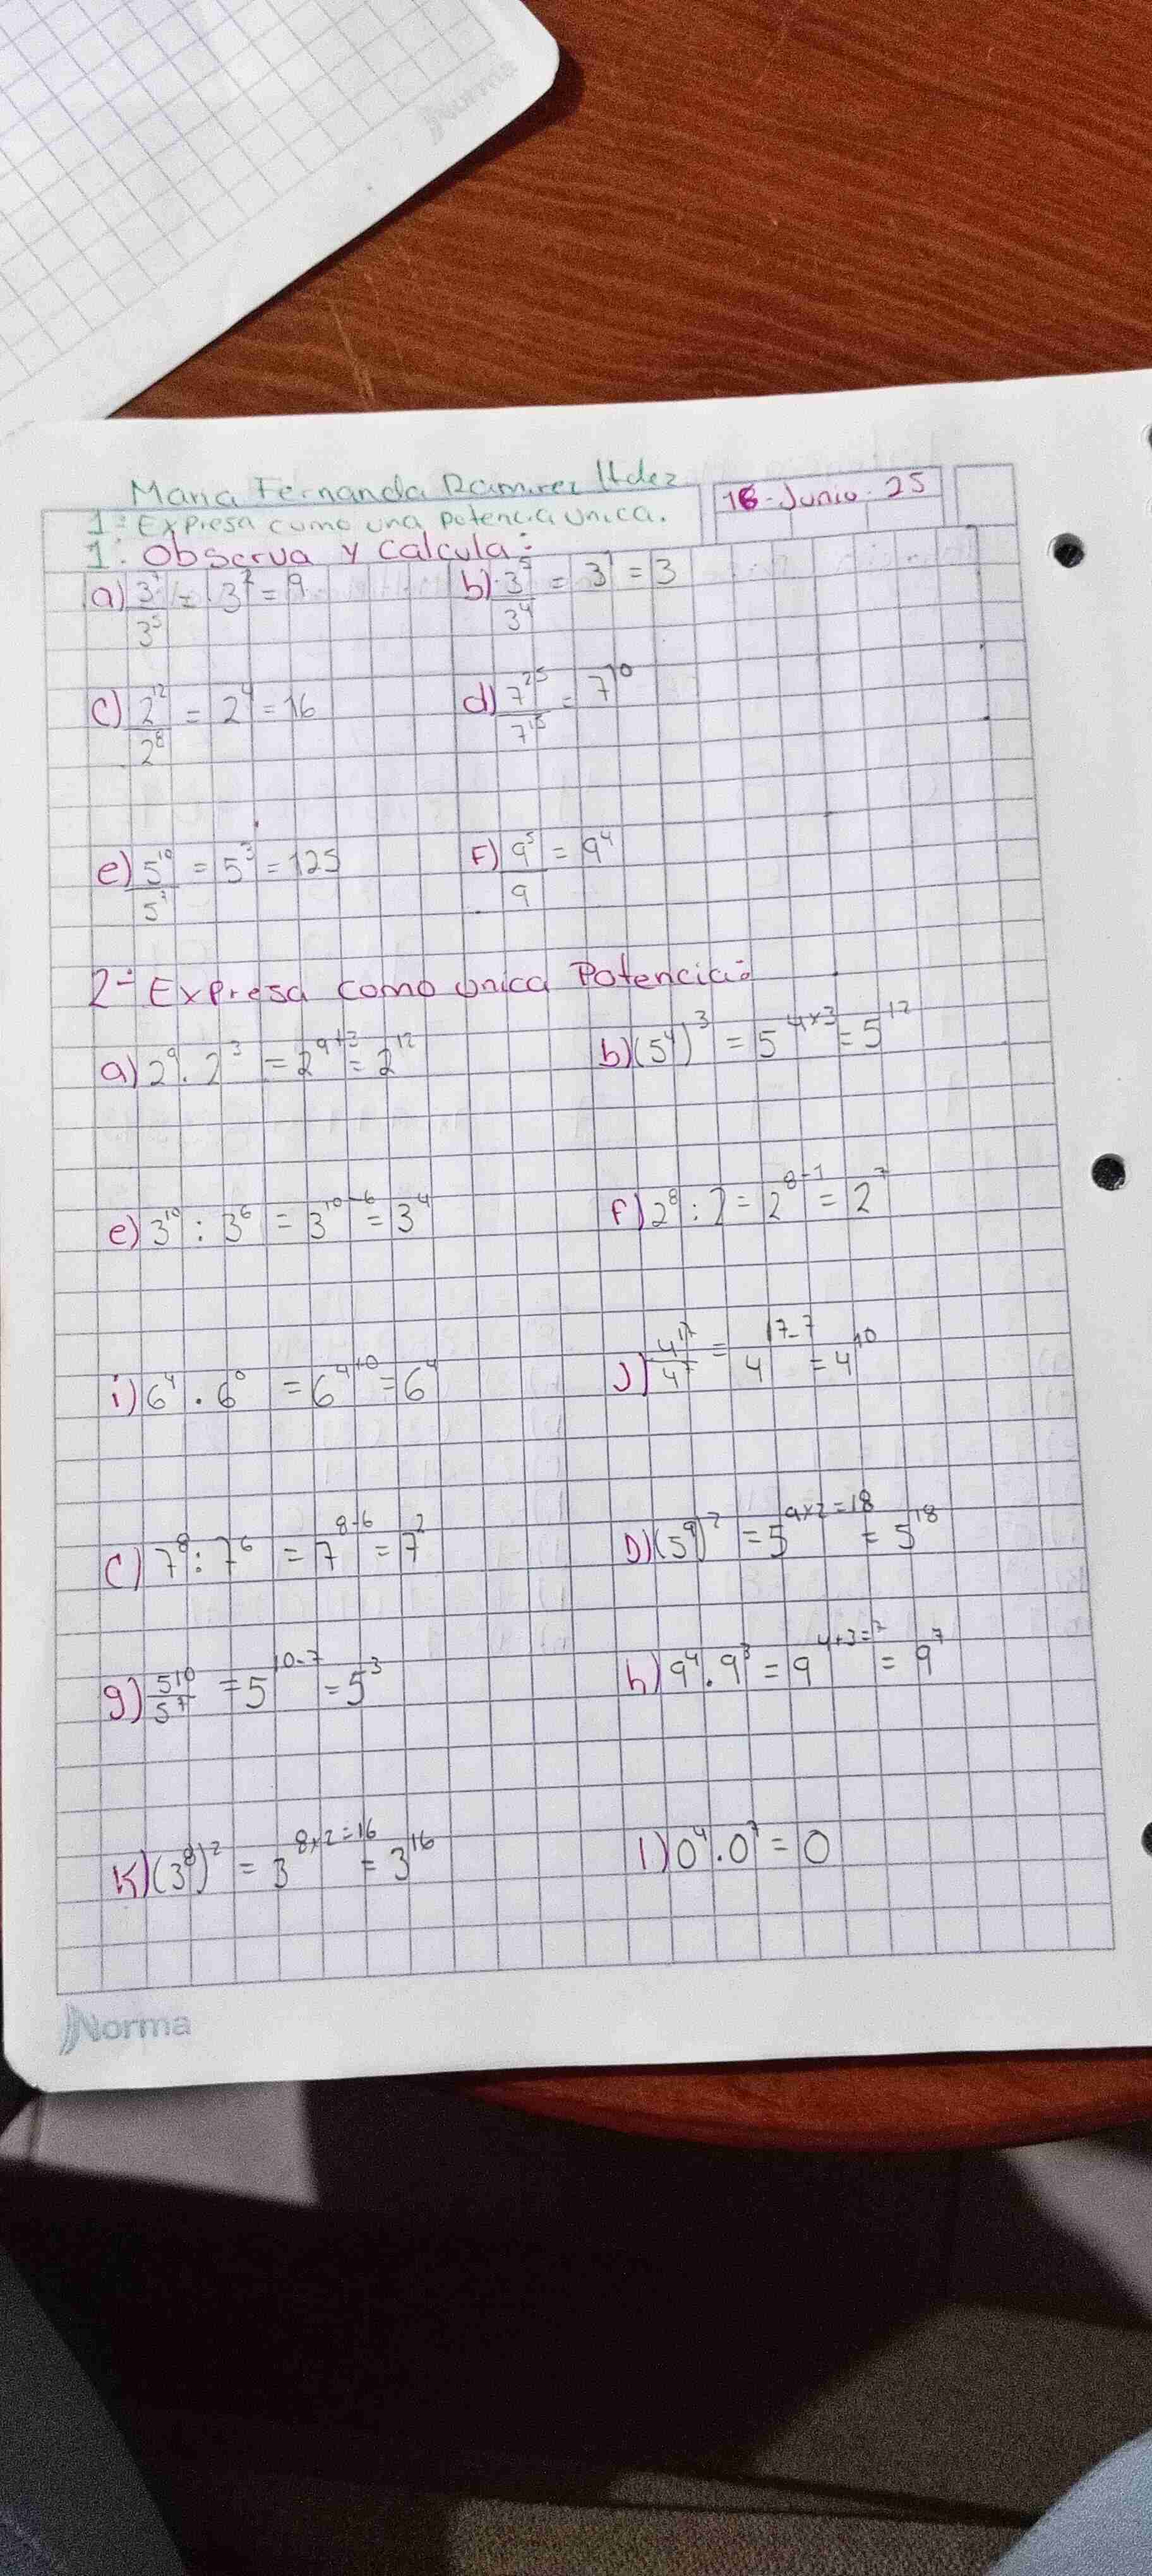 Norma
Maria Fernanda Ramirez Hdez
16-Junio-25
1: Expresa como una potencia unica.
1: Observa y calcula:
a) 3⁷/3⁵ = 3² = 9 b) 3⁵/3⁴ = 3¹ = 3
c) 2¹²/2⁸ = 2⁴ = 16 d) 7²⁵/7¹⁵ = 7¹⁰
e) 5¹⁰/5⁷ = 5³ = 125 F) 9⁵/9 = 9⁴
2- Expresa como unica Potencia:
a) 2⁹ . 2³ = 2⁹⁺³ = 2¹² b) (5⁴)³ = 5⁴ˣ³ = 5¹²
e) 3¹⁰ : 3⁶ = 3¹⁰⁻⁶ = 3⁴ F) 2⁸ : 2 = 2⁸⁻¹ = 2⁷
i) 6⁴ . 6⁰ = 6⁴⁺⁰ = 6⁴ J) 4¹⁷/4⁷ = 4¹⁷⁻⁷ = 4¹⁰
C) 7⁸ : 7⁶ = 7⁸⁻⁶ = 7² D) (5⁹)² = 5⁹ˣ²⁼¹⁸ = 5¹⁸
g) 5¹⁰/5⁷ = 5¹⁰⁻⁷ = 5³ h) 9⁴ . 9³ = 9⁴⁺³⁼⁷ = 9⁷
K) (3⁸)² = 3⁸ˣ²⁼¹⁶ = 3¹⁶ l) 0⁴ . 0⁷ = 0
Norma